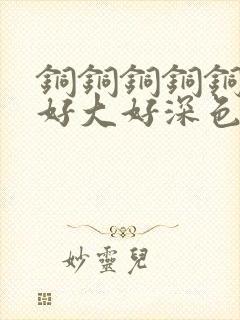 銅銅銅銅銅
好大好深色
妙靈兒